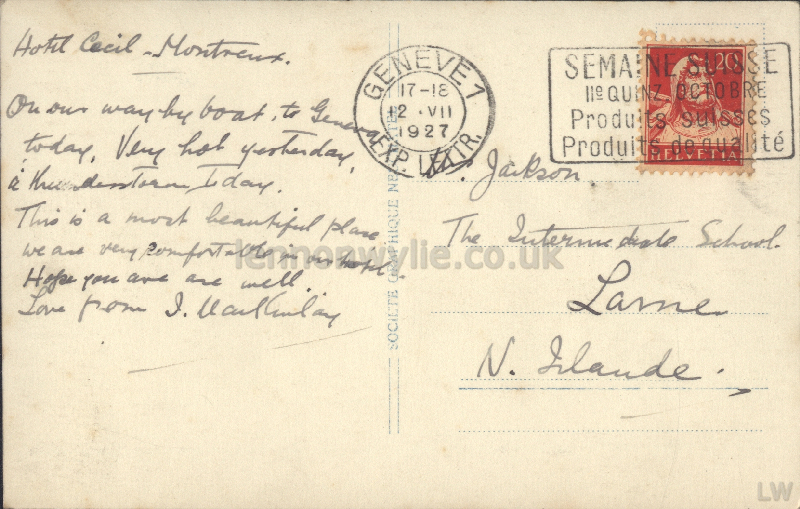 Hotel Cecil - Montreux.
On our way by boat, to Geneva
today. Very hot yesterday,
& thunderstorm today.
This is a most beautiful place,
we are very comfortable in our hotel.
Hope you are are well.
Love from J.
GENÈVE 1
17-18
2 · VII
1927
EXP. LETTR.
SEMAINE SUISSE
IIº QUINZ. OCTOBRE
Produits suisses
Produits de qualité
20
HELVETIA
Jackson.
The Intermediate School.
Larne.
N. Irlande.
SOCIÉTÉ GRAPHIQUE
lennonwylie.co.uk
LW